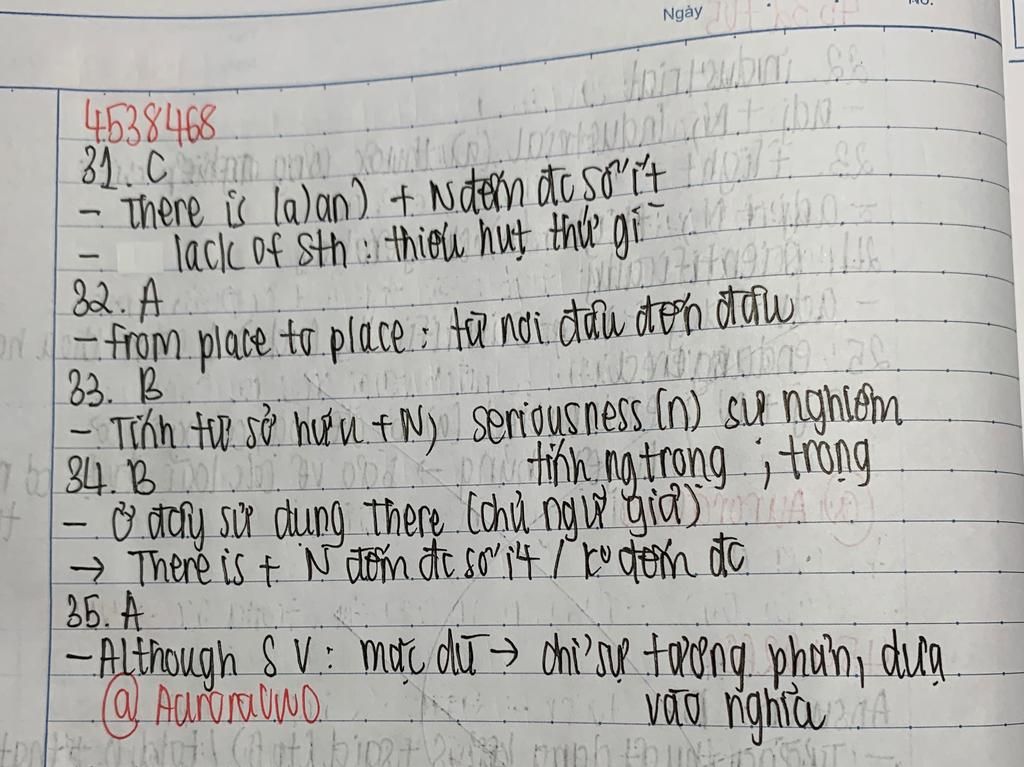 Ngày
No.
4538468
31. C
- There is (a/an) + N đếm đc số ít
- lack of sth : thiếu hụt thứ gì
32. A
- from place to place : từ nơi đâu đến đâu
33. B
- Tính từ sở hữu + N, seriousness (n) sự nghiêm
tính ng trọng ; trọng
34. B
- Ở đây sử dụng there (chủ ngữ giả)
→ There is + N đếm đc số ít / ko đếm đc
35. A
- Although S V : mặc dù → chỉ sự tương phản, dựa
vào nghĩa
@ AuroraUWU